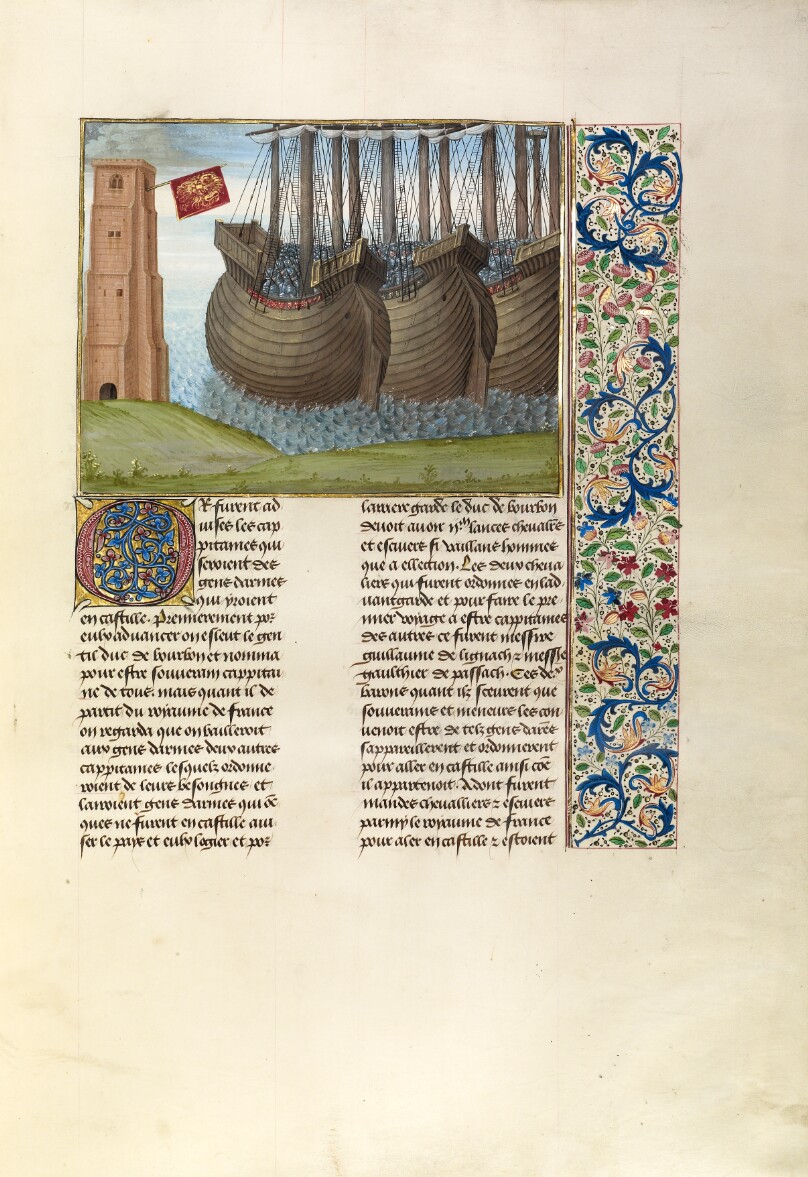 Or furent ad
uises les cap
pitaines qui
seroient des
gens darmes
qui yroient
en castille. Premierement por
eulx advancer on eslent le gen
til duc de bourbon et nomma
pour estre souverain cappitai
ne de tous. mais quant il de
partit du royaume de france
on regarda que on bailleroit
aux gens darmes deux autres
cappitaines lesquelz ordonne
roient de leurs besongnes et
lauroient gens darmes qui
ques ne furent en castille aui
ser le pays et eulx logier et por
larriere garde le duc de bourbon
devoit avoir lances chevaliers
et escuiers si vaillans hommes
que a ellection. Les deux cheva
liers qui furent ordonnes en lad
uantgarde et pour faire le pre
mier voyage a estre cappitaines
des autres ce furent messire
guillaume de lignach z messire
gaulthier de passach. Ces de.x
barons quant ilz sceurent que
souverains et meneurs les con
venoit estre de telz gens darmes
sappareillerent et ordonnerent
pour aller en castille ainsi cõe
il appartenoit. Adont furent
mandes chevalliers z escuiers
parmy le royaume de france
pour aler en castille z estoient